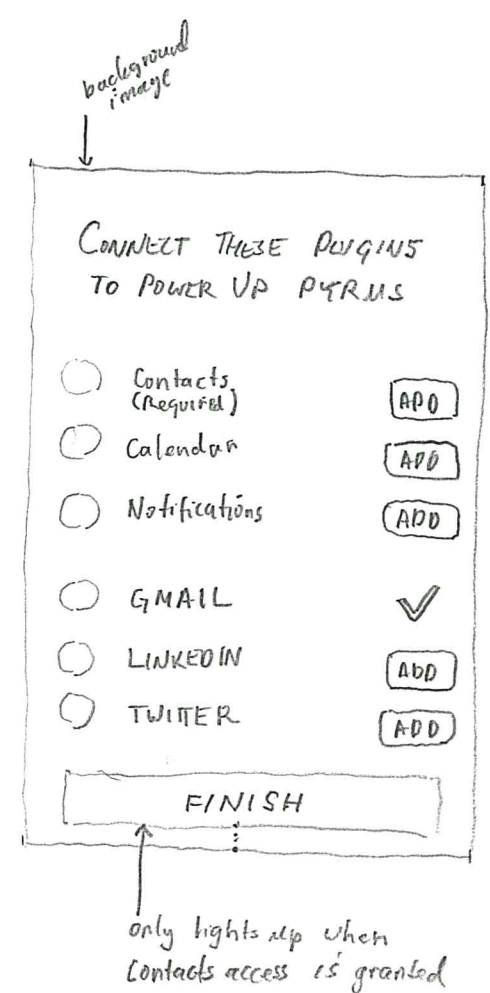 background
image
CONNECT THESE PLUGINS
TO POWER UP PYRUS
Contacts
(Required)
ADD
Calendar
ADD
Notifications
ADD
GMAIL
LINKEDIN
ADD
TWITTER
ADD
FINISH
only lights up when
Contacts access is granted